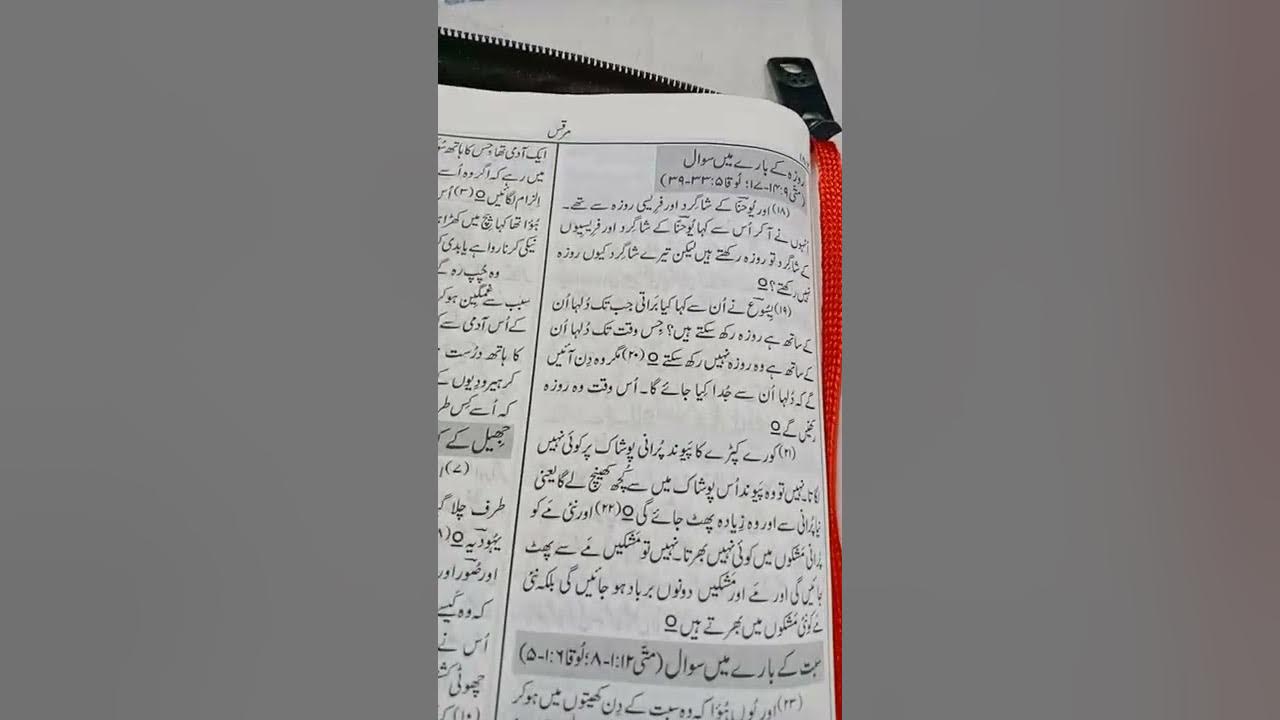 مرقس
روزہ کے بارے میں سوال
(متی ۹:‏۱۴-۱۷؛ لُوقا ۵:‏۳۳-۳۹)
(۱۸) اور یُوحنّا کے شاگِرد اور فریسی روزہ سے تھے۔
اُنہوں نے آ کر اُس سے کہا یُوحنّا کے شاگِرد اور فریسیوں
کے شاگِرد تو روزہ رکھتے ہیں لیکن تیرے شاگِرد کیوں روزہ
نہیں رکھتے؟ O
(۱۹) یِسُوع نے اُن سے کہا کیا براتی جب تک دُلہا اُن
کے ساتھ ہے روزہ رکھ سکتے ہیں؟ جِس وقت تک دُلہا اُن
کے ساتھ ہے وہ روزہ نہیں رکھ سکتے O (۲۰) مگر وہ دِن آئیں
گے کہ دُلہا اُن سے جُدا کِیا جائے گا۔ اُس وقت وہ روزہ
رکھیں گے O
(۲۱) کورے کپڑے کا پَیوند پُرانی پوشاک پر کوئی نہیں
لگاتا۔ نہیں تو وہ پَیوند اُس پوشاک میں سے کُچھ کھینچ لے گا یعنی
نیا پُرانی سے اور وہ زِیادہ پھٹ جائے گی O (۲۲) اور نئی مَے کو
پُرانی مَشکوں میں کوئی نہیں بھرتا۔ نہیں تو مَشکیں مَے سے پھٹ
جائیں گی اور مَے اور مَشکیں دونوں برباد ہو جائیں گی بلکہ نئی
مَے کو نئی مَشکوں میں بھرتے ہیں O
سبت کے بارے میں سوال (متی ۱۲:‏۱-۸؛ لُوقا ۶:‏۱-۵)
(۲۳) اور یُوں ہُؤا کہ وہ سبت کے دِن کھیتوں میں ہو کر
ایک آدمی تھا جِس کا ہاتھ
میں رہے کہ اگر وہ اُسے
اِلزام لگائیں O (۳) اُس
ہُؤا تھا کہا بِیچ میں کھڑا
نیکی کرنا روا ہے یا بدی
وہ چُپ رہ
سبب سے غمگین ہو کر
کے اُس آدمی سے
کا ہاتھ درُست
کر ہیرودیوں کے
کہ اُسے کِس طر
جھیل کے
(۷)
طرف چلا
یہُودیہ O
اور صُور اور
کہ وہ کَیسے
اُس نے
چھوٹی
(۱۰)